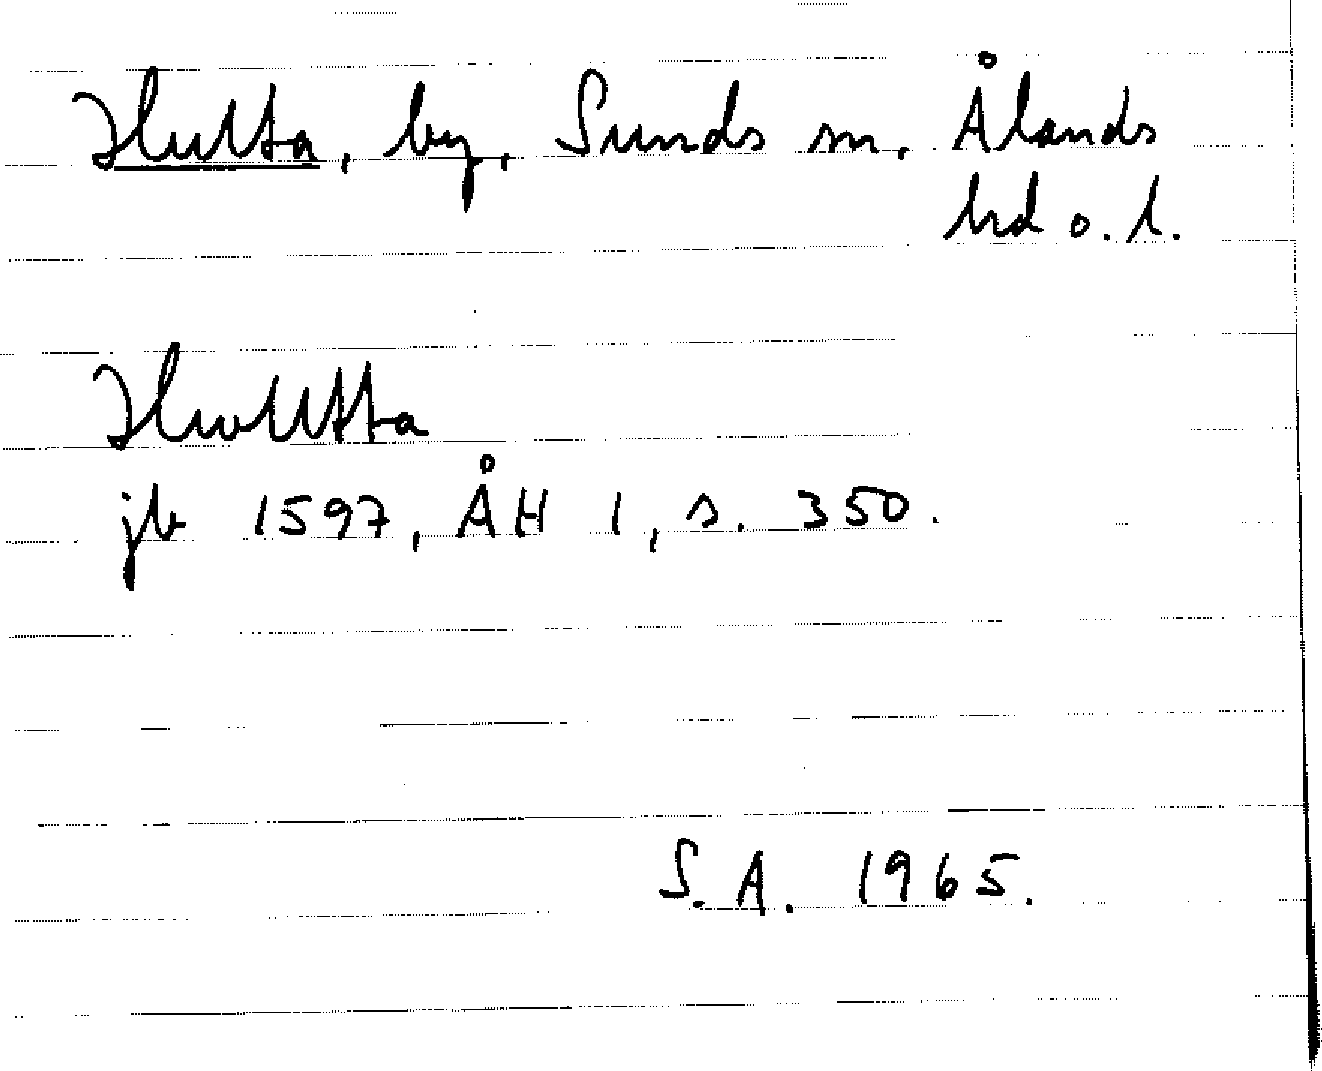 Hulta, by, Sunds sn, Ålands
hd o. l.
Hwlltta
jb 1597, ÅH 1, s. 350.
S.A. 1965.